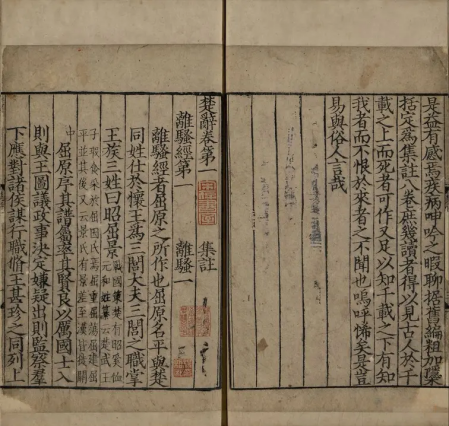 是益有感焉疾病呻吟之暇聊据舊編粗加櫽
括定為集註八卷庶幾讀者得以見古人於千
載之上而死者可作又足以知千載之下有知
我者而不恨於來者之不聞也嗚呼悕矣是豈
易與俗人言哉
楚辭卷第一 集註
離騷經第一 離騷一
離騷經者屈原之所作也屈原名平與楚
同姓仕於懷王為三閭大夫三閭之職掌
王族三姓曰昭屈景
屈原序其譜屬率其賢良以厲國士入
則與王圖議政事決定嫌疑出則監察羣
下應對諸侯謀行職脩王甚珍之同列上